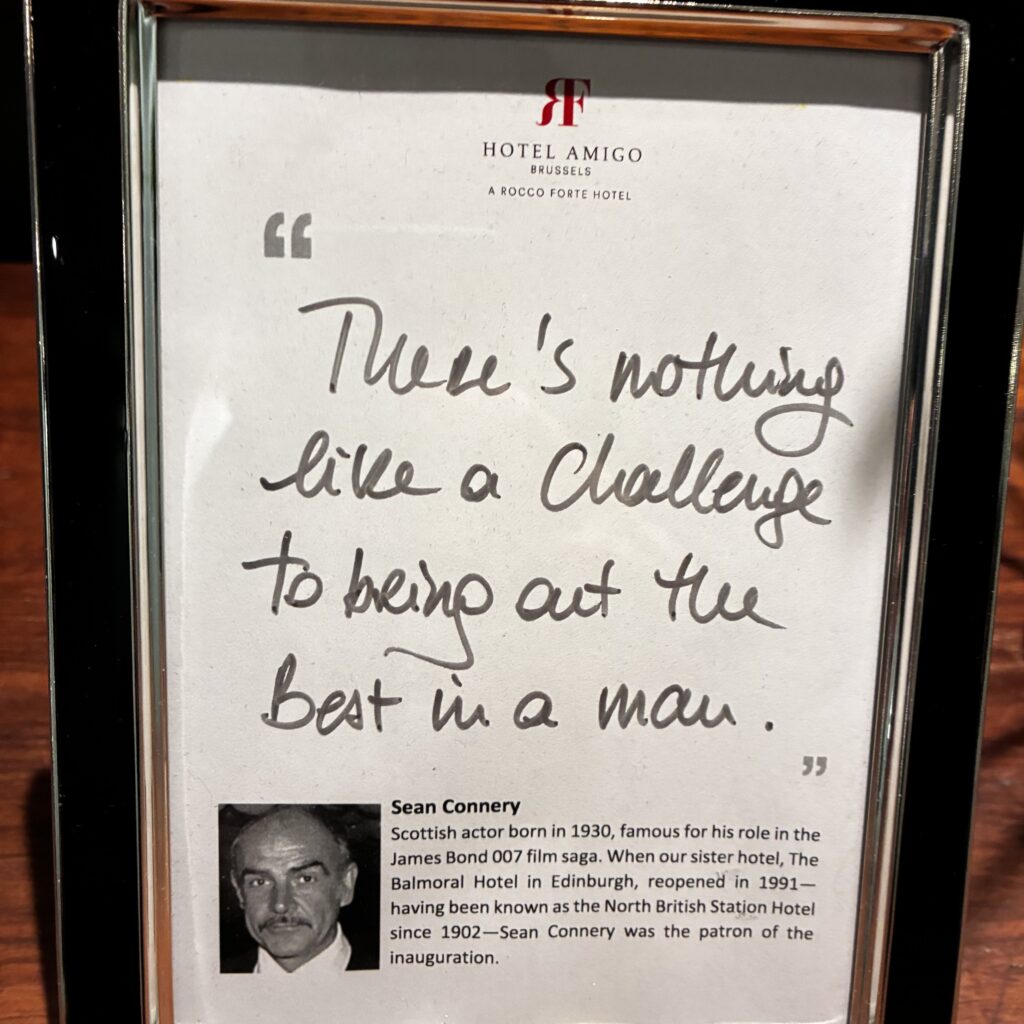 RF
HOTEL AMIGO
BRUSSELS
A ROCCO FORTE HOTEL
“
There's nothing
like a challenge
to bring out the
Best in a man.
”
Sean Connery
Scottish actor born in 1930, famous for his role in the
James Bond 007 film saga. When our sister hotel, The
Balmoral Hotel in Edinburgh, reopened in 1991—
having been known as the North British Station Hotel
since 1902—Sean Connery was the patron of the
inauguration.